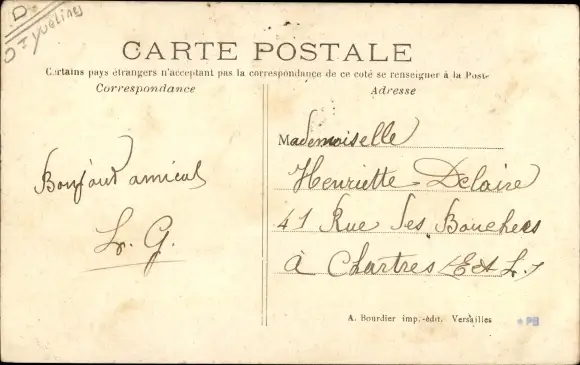 D
YVELINES
CARTE POSTALE
Certains pays étrangers n'acceptant pas la correspondance de ce coté se renseigner à la Poste
Correspondance
Adresse
Bonjour amical
L. G.
Mademoiselle
Henriette Delaire
41 Rue des Bouchers
à Chartres (E & L.)
A. Bourdier imp.-édit. Versailles
PB